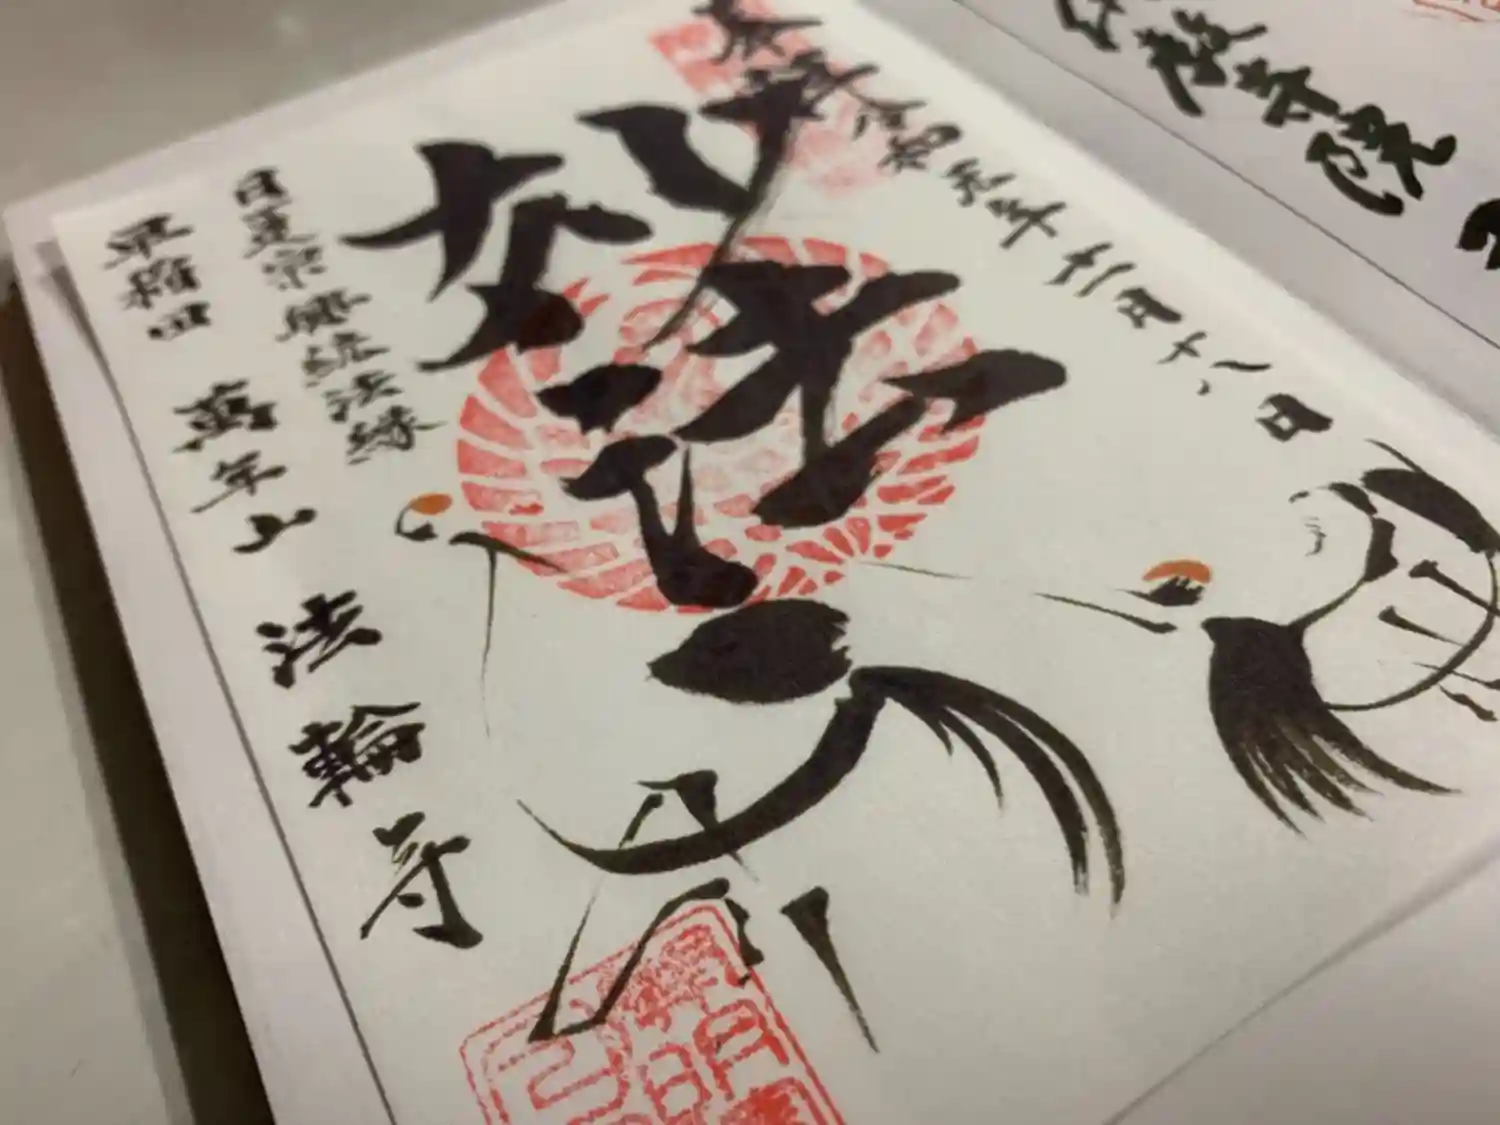 奉拝 令和元年十二月十八日
妙法
日蓮宗 興統法縁
早稲田 萬年山 法輪寺